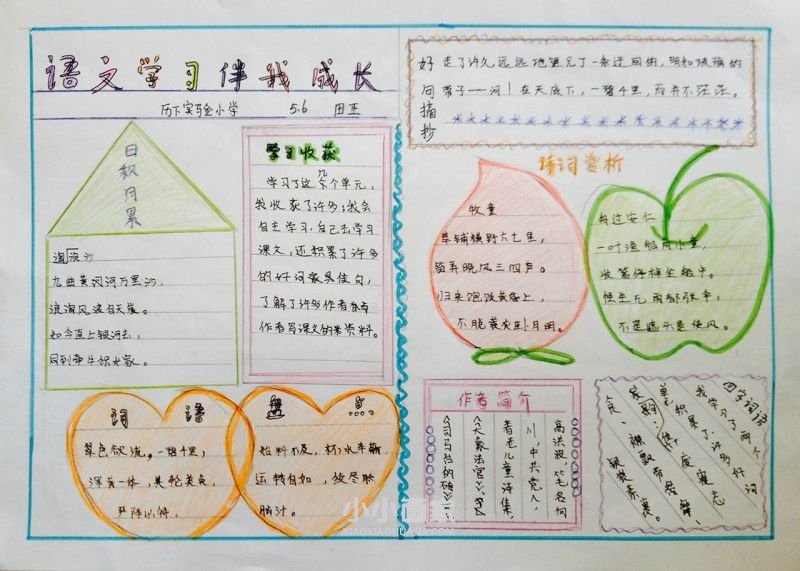 语文学习伴我成长
历下实验小学 5.6 田正
好句摘抄
走了许久,远远地望见了一条迂回的,明如玻璃的
带子——河!在天底下,一碧千里,而并不茫茫。
日积月累
浪淘沙
九曲黄河万里沙,
浪淘风簸自天涯。
如今直上银河去,
同到牵牛织女家。
学习收获
学习了这几个单元,
我收获了许多;我会
自主学习,自己去学习
课文,还积累了许多
的好词
了解了许多作者
作者写课文的 资料。
诗词赏析
牧童
草铺横野六七里,
笛弄晚风三四声。
归来饱饭黄昏后,
不脱蓑衣卧月明。
舟过安仁
一叶渔船两小童,
收篙停棹坐船中。
怪生无雨都张伞,
不是遮头是使风。
词语盘点
翠色欲流,一碧千里,
浑为一体,美轮美奂,
严阵以待,
始料不及,水车
运转自如,绞尽脑
脑汁。
作者简介
高洪波,笔名向
川,中共党人,
著者儿童诗集,
《大象法官》
四字词语
我学习了两个
单元,积累了许多好词